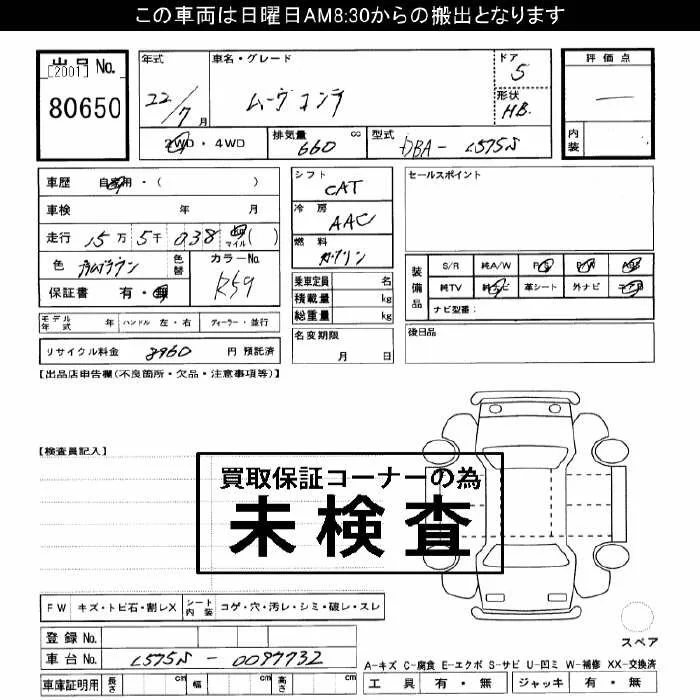 この車両は日曜日AM8:30からの搬出となります
出品 No.
[2001]
80650
年式
22/7月
車名・グレード
ムーヴ コンテ
ドア
5
形状
HB
評価点
—
内装
2WD・4WD
排気量 660 cc
型式 DBA- L575S
車歴 自家用・( )
車検 年 月
走行 15万 5千 038 マイル( )
色 プラムブラウン
色替
カラーNo. R59
保証書 有・無
シフト
CAT
冷房
AAC
燃料
ガソリン
乗車定員 名
積載量 kg
総重量 kg
名変期限
月 日
セールスポイント
装備品
S/R 純A/W P/S P/W A/B
純TV 純ナビ 革シート 外ナビ
ナビ型番:
後日品
モデル年式 年 ハンドル 左・右 ディーラー・並行
リサイクル料金 8960 円 預託済
【出品店申告欄(不良箇所・欠品・注意事項等)】
【検査員記入】
買取保証コーナーの為
未検査
FW キズ・トビ石・割レX シート内装 コゲ・穴・汚レ・シミ・破レ・スレ
登録 No.
車台 No. L575S - 0097732
車庫証明用 長さ cm 幅 cm 高さ cm
スペア
A-キズ C-腐食 E-エクボ S-サビ U-凹ミ W-補修 XX-交換済
工具 有・無 ジャッキ 有・無